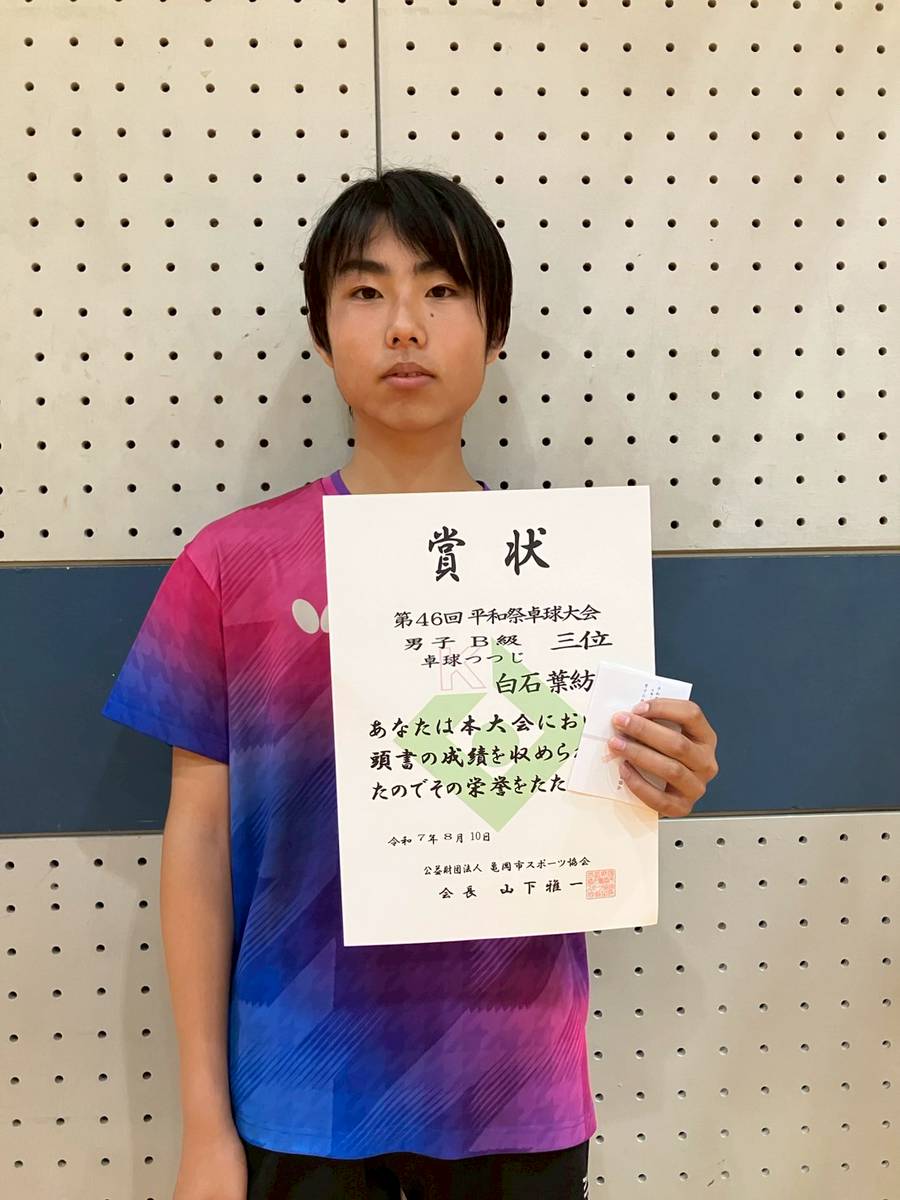 賞状
第46回平和祭卓球大会
男子 B級 三位
卓球つつじ
白石葉紡
あなたは本大会にお
頭書の成績を収めら
たのでその栄誉をたた
令和7年8月10日
公益財団法人 亀岡市スポーツ協会
会長 山下雅一